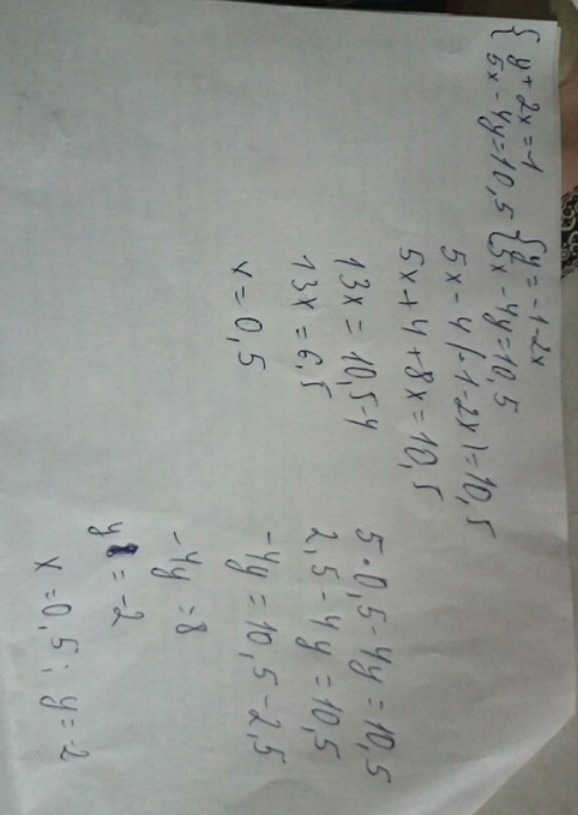 { y + 2x = -1 { y = -1 - 2x
5x - 4y = 10,5 5x - 4y = 10,5
5x - 4(-1 - 2x) = 10,5
5x + 4 + 8x = 10,5
13x = 10,5-4
13x = 6,5
x = 0,5
5 · 0,5 - 4y = 10,5
2,5 - 4y = 10,5
-4y = 10,5 - 2,5
-4y = 8
y = -2
x = 0,5; y = -2